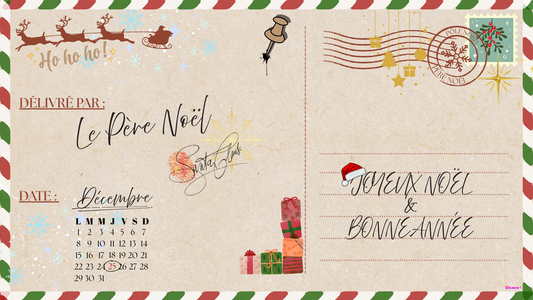 Ho ho ho!
DÉLIVRÉ PAR :
Le Père Noël
Santa Claus
DATE :
Décembre
L M M J V S D
1 2 3 4 5 6 7
8 9 10 11 12 13 14
15 16 17 18 19 20 21
22 23 24 25 26 27 28
29 30 31
PÈRE NOËL
JOYEUX NOËL
&
BONNE ANNÉE